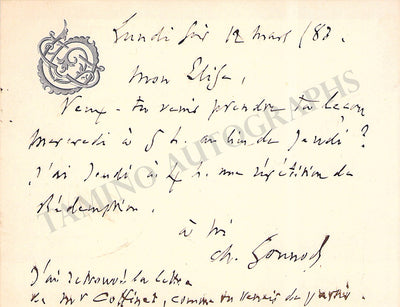 Lundi soir 12 mars /83.
Mon Elisa,
Veux-tu venir prendre ta leçon
Mercredi à 5 h. au lieu de Jeudi ?
J'ai Jeudi à 4 h. une répétition de
Rédemption.
à toi
Ch. Gounod
J'ai retrouvé la lettre
de Mr Coffinet, comme tu venais de partir.
TAMINO AUTOGRAPHS